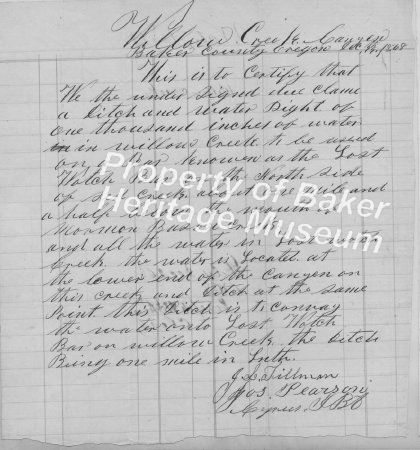 Willow Creek Canyon
Baker County Oregon
This is to Certify that
We the under Signed due Claim
a Ditch and Water Right of
One thousand inches of water
in willow Creek to be used
on Bar known as the Lost
Watch North Side
of sd Creek about one mile and
a half the mouth of
Mormon Basin
and all the water in Lost Watch
Creek the water is Locates at
the lower end of the Canyon on
this Creek and Ditch at the same
Point this Ditch is to Convay
the water onto Lost Watch
Bar on willow Creek the Ditch
Being one mile in Lnth.
J. S. Tillman
Jos. Pearson
Cyrus
Property of Baker
Heritage Museum